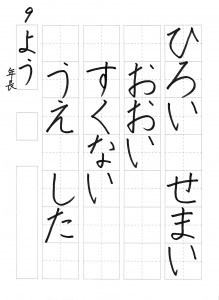 ひろい　せまい
おおい
すくない
うえ　した
9
よう
年長